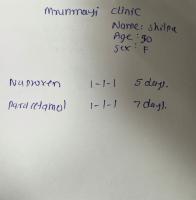 mrunmayi clinic
Name: Shilpa
Age: 30
Sex: F
Naproxen 1-1-1 5 days.
paracetamol 1-1-1 7 days.